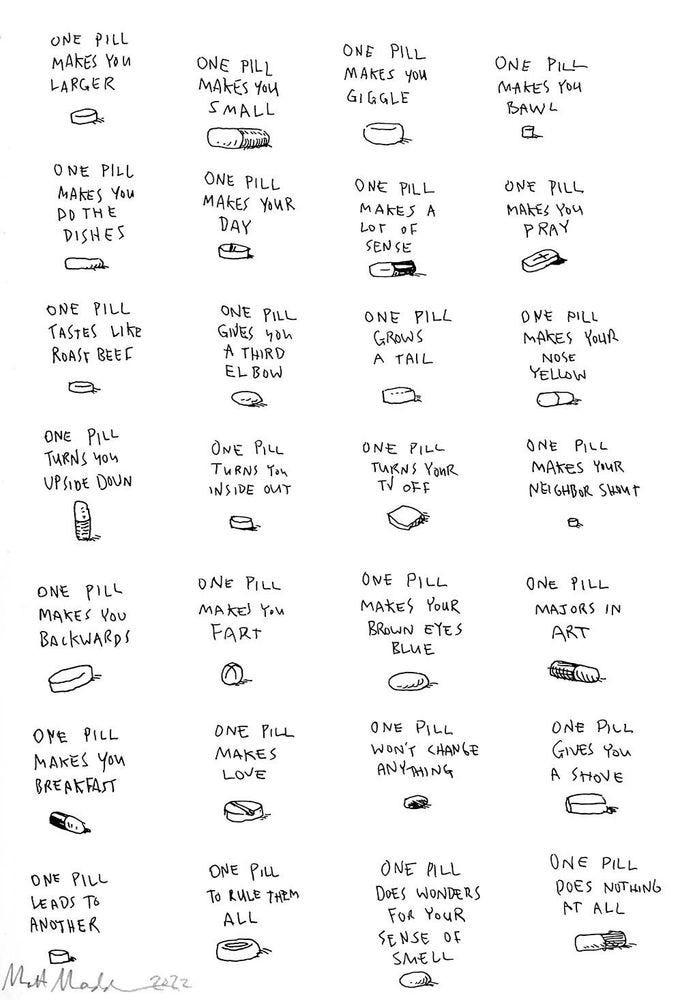 ONE PILL
MAKES YOU
LARGER
ONE PILL
MAKES YOU
SMALL
ONE PILL
MAKES YOU
GIGGLE
ONE PILL
MAKES YOU
BAWL
ONE PILL
MAKES YOU
DO THE
DISHES
ONE PILL
MAKES YOUR
DAY
ONE PILL
MAKES A
LOT OF
SENSE
ONE PILL
MAKES YOU
PRAY
ONE PILL
TASTES LIKE
ROAST BEEF
ONE PILL
GIVES YOU
A THIRD
ELBOW
ONE PILL
GROWS
A TAIL
ONE PILL
MAKES YOUR
NOSE
YELLOW
ONE PILL
TURNS YOU
UPSIDE DOWN
ONE PILL
TURNS YOU
INSIDE OUT
ONE PILL
TURNS YOUR
TV OFF
ONE PILL
MAKES YOUR
NEIGHBOR SHOUT
ONE PILL
MAKES YOU
BACKWARDS
ONE PILL
MAKES YOU
FART
ONE PILL
MAKES YOUR
BROWN EYES
BLUE
ONE PILL
MAJORS IN
ART
ONE PILL
MAKES YOU
BREAKFAST
ONE PILL
MAKES
LOVE
ONE PILL
WON'T CHANGE
ANYTHING
ONE PILL
GIVES YOU
A SHOVE
ONE PILL
LEADS TO
ANOTHER
ONE PILL
TO RULE THEM
ALL
ONE PILL
DOES WONDERS
FOR YOUR
SENSE OF
SMELL
ONE PILL
DOES NOTHING
AT ALL
Matt 2022